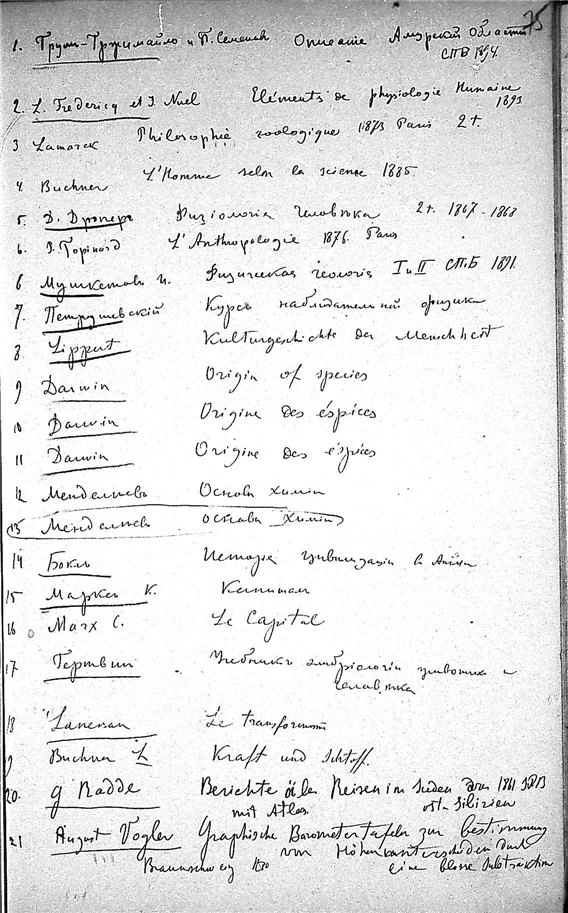 75
1. Грум-Гржимайло и П. Семенов Описаніе Амурской Области
СПБ 1894.
2. L. Fredericq et J. Nuel Eléments de physiologie Humaine
1893
3 Lamarck Philosophie zoologique 1873 Paris 2 t.
4. Buchner L'Homme selon la science 1885.
5. Д. Дрэперъ Физіологія Человѣка 2 т. 1867-1868
6. P. Topinard L'Anthropologie 1876. Paris
6 Мушкетовъ И. Физическая геологія I и II СПБ 1891.
7. Петрушевскій Курсъ наблюдательной физики
8. Lippert Kulturgeschichte der Menschheit
9 Darwin Origin of species
10 Darwin Origine des éspices
11 Darwin Origine des éspices
12 Менделѣевъ Основы химіи
13 Менделѣевъ основы химіи
14 Бокль Исторія цивилизаціи в Англіи
15 Марксъ К. Капитал
16 Marx C. Le Capital
17 Гертвигъ Учебникъ эмбріологіи животныхъ и
человѣка
18 Lanessan Le transformisme
9 Buchner L Kraft und Schtoff.
20. G Radde Berichte über Reisen im Süden von 1861 SPB
mit Atlas. ost-Sibirien
21 August Vogler Graphische Barometertafeln zur bestimmung
von Höhenunterschieden durch
Braunschweig eine blosse Substraktion